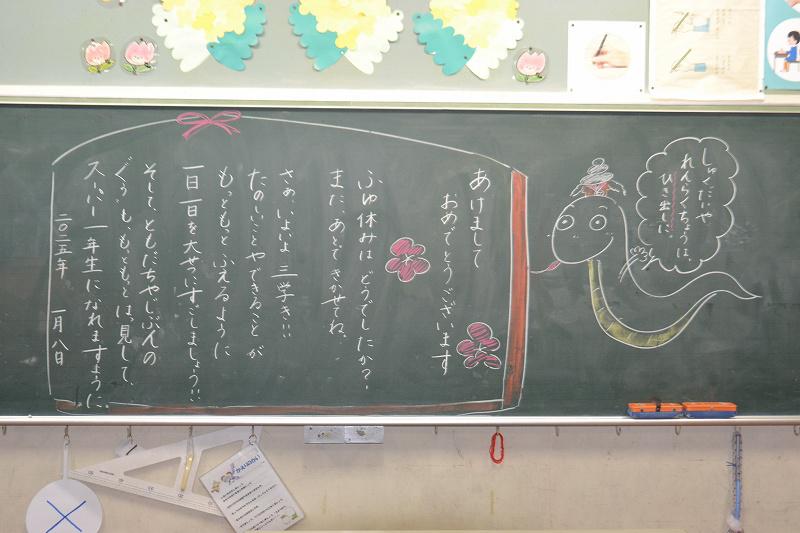 あけまして
おめでとうございます
ふゆ休みは どうでしたか？
また、あとで きかせてね。
さぁ、いよいよ 三学き!!
たのしいことや できることが
もっともっと ふえるように
一日一日を 大せつにすごしましょう!!
そして、ともだちや じぶんの
ぐぅ〜も、もっともっと はっ見して、
スーパー一年生に なれますように。
二〇二五年 一月八日
しゅくだいや
れんらくちょうは、
ひき出しに。